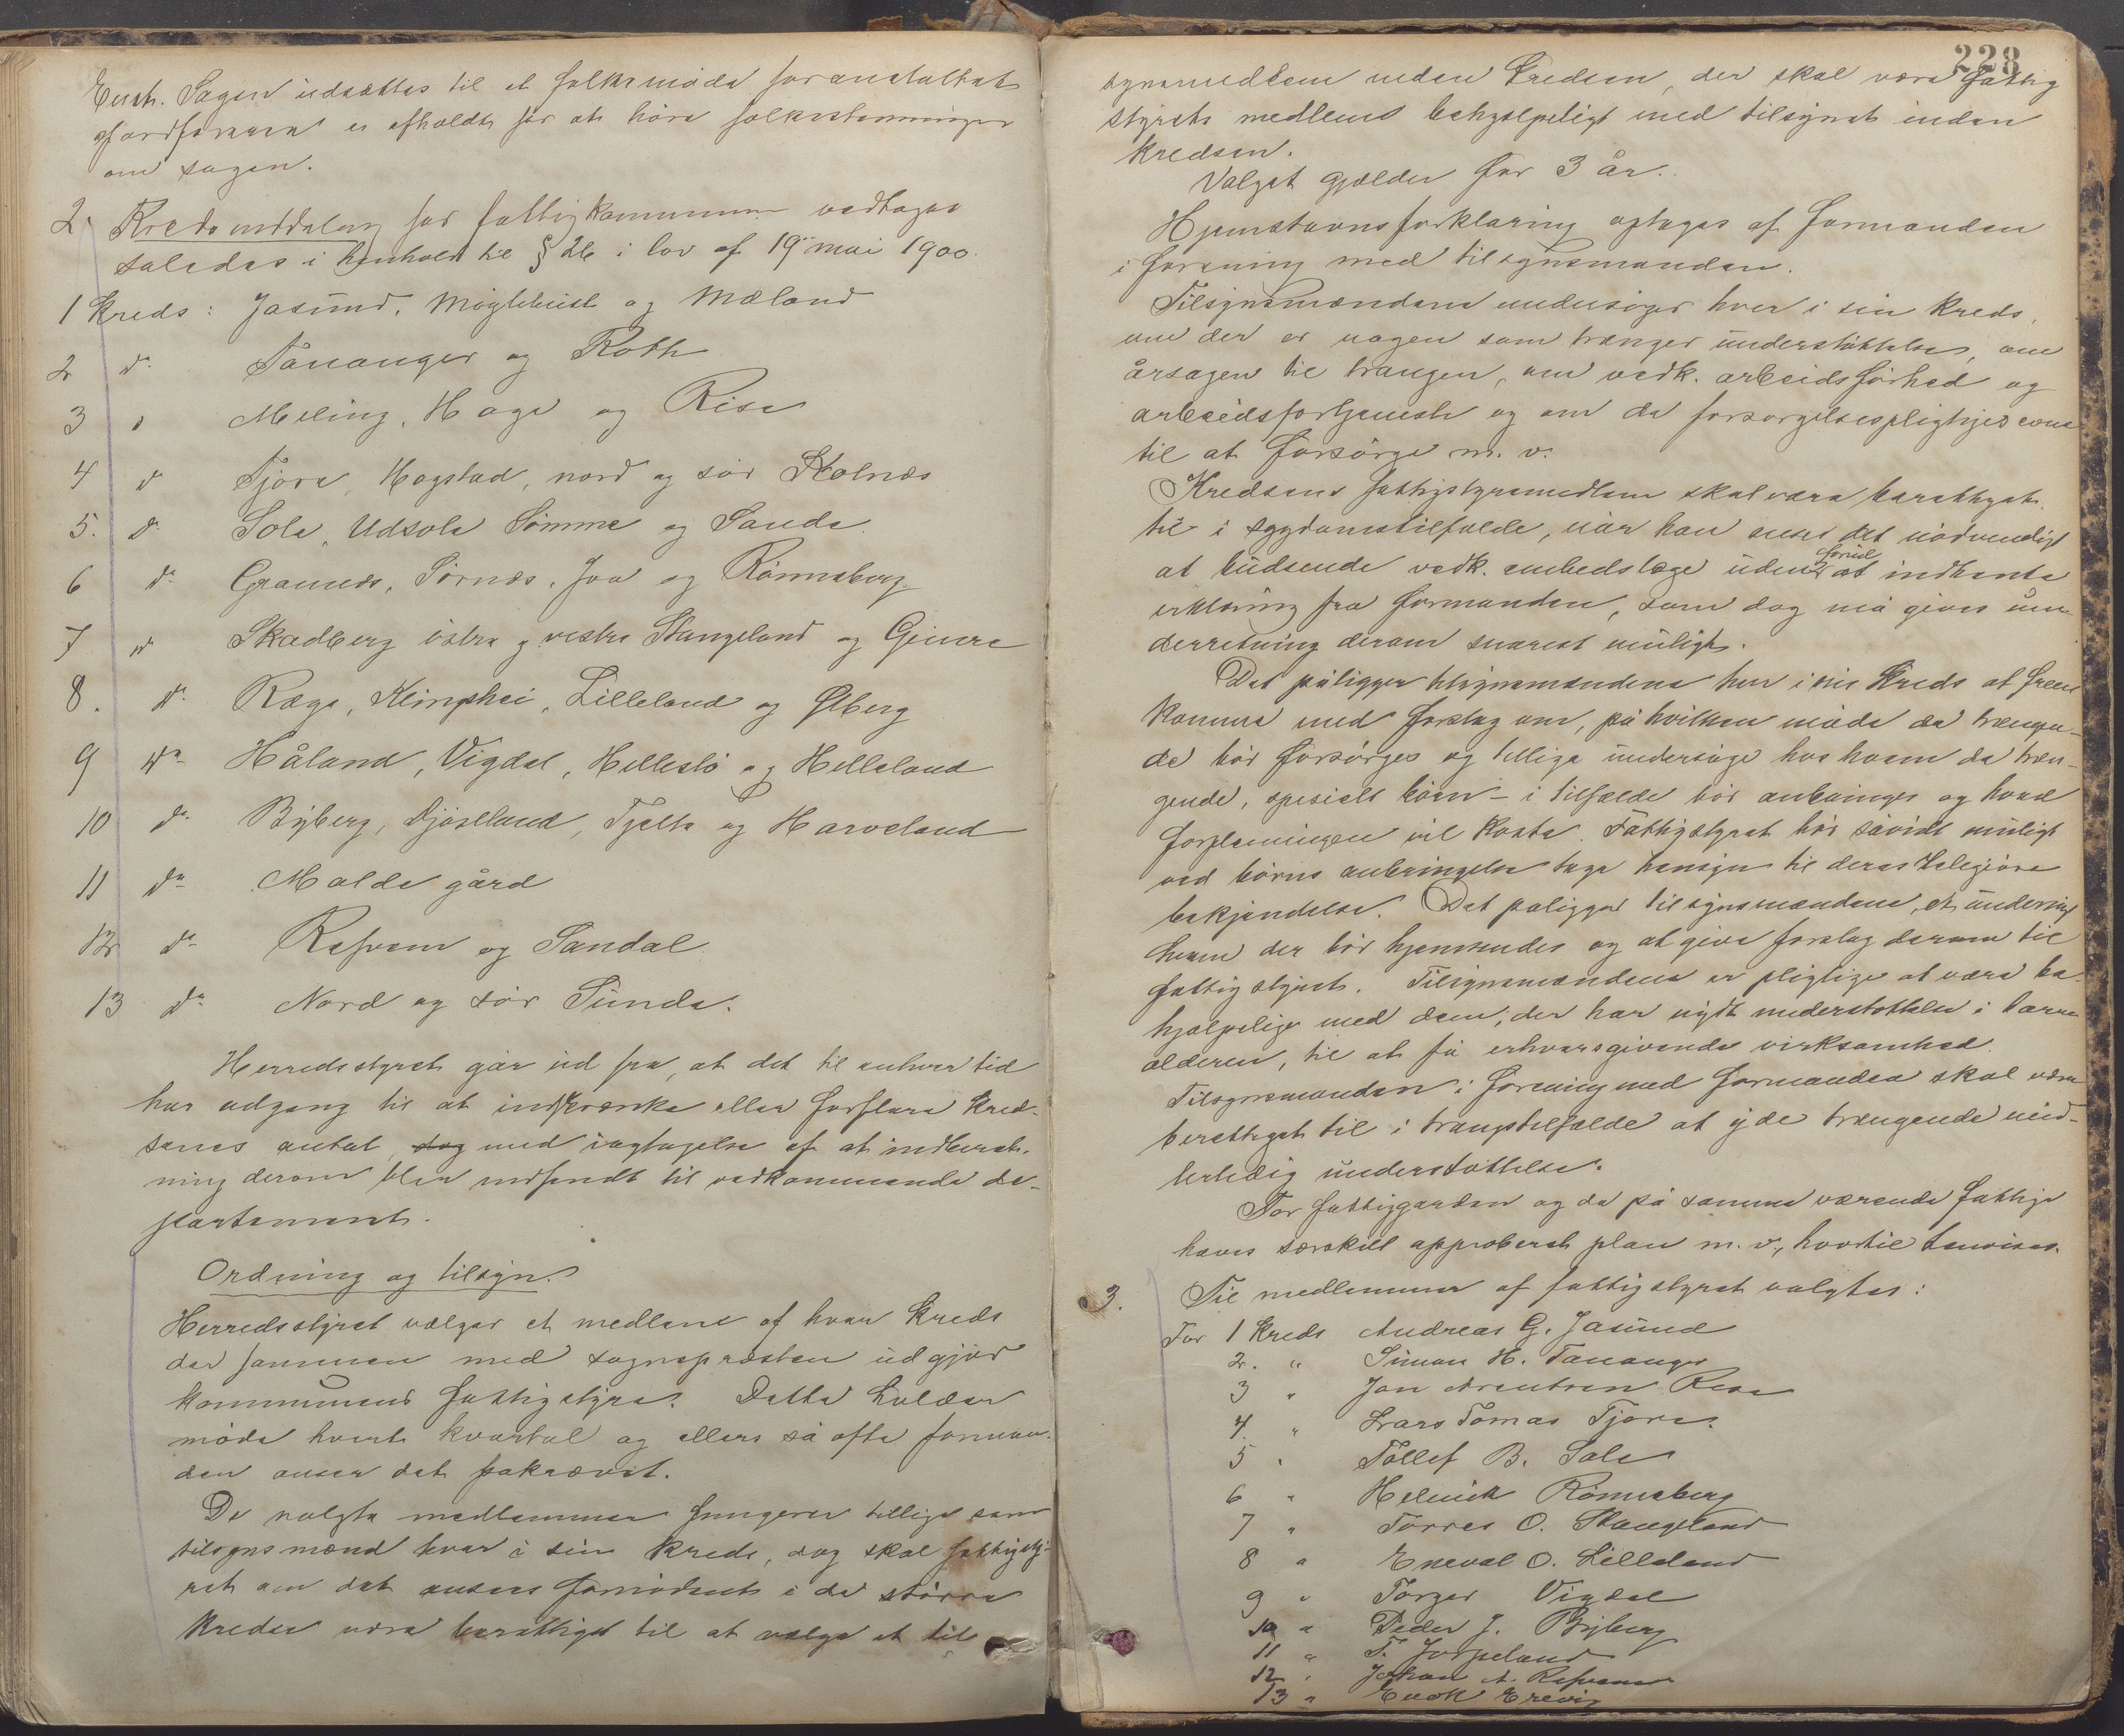 Enst. Sagen udsættes til et folkemøde foranstaltet
af ordføreren er afholdt for at høre folkestemningen
om sagen.
2. Kredsinddeling for fattigkommunen vedtoges
saledes i henhold til § 26 i lov af 19 mai 1900.
1 Kreds: Jasund, Møglebust og Mæland
2 do. Tananger og Roth
3 " Meling, Haga og Risa
4 d Tjora, Hogstad, nord og sør Kolnes
5. d. Sola, Udsola Sømme og Sanda.
6 do. Grannes, Sørnes, Joa og Rønneberg.
7 d Skadberg østra og vestra Stangeland og Gimra
8. do. Ræge, Kleingshei, Lilleland og Ølberg
9 do. Håland, Vigdel, Hellestø og Helleland
10 do. Byberg, Djøseland, Tjelta og Harveland
11 do. Malde gård
12 do. Refsvem og Sandal
13 do. Nord og sør Sunde.
Herredsstyret går ud fra, at det til enhver tid
har adgang til at indskrænke eller forflere kred-
senes antal med iagtagelse af at indberet-
ning derom blir indsendt til vedkommende de-
partement.
Ordning og tilsyn.
Herredsstyret vælger et medlem af hver kreds
der sammen med sognepræsten udgjør
kommunens fattigstyre. Dette holder
møde hvert kvartal og ellers så ofte forman-
den anser det pakrævet.
De valgte medlemmer fungerer tillige som
tilsynsmænd hver i sin kreds, dog skal fattigsty-
ret om det ansees fornødent i de større
kredse være berettiget til at vælge et til
228
synsmedlem inden kredsen, der skal være fattig
styrets medlem behjælpeligt med tilsynet inden
kredsen.
Valget gjælder for 3 år.
Hjemstavnsforklaring optages af formanden
i forening med tilsynsmanden.
Tilsynsmændene undersøger hver i sin kreds,
om der er nogen som trænger understøttelse, om
årsagen til trangen, om vedk. arbeidsførhed og
arbeidsfortjeneste og om de forsørgelsespligtiges evne
til at forsørge m. v.
Kredsens fattigstyremedlem skal være berettiget
til i sygdomstilfælde, når han anser det nødvendigt
at budsende vedk. embedslæge uden forud at indhente
erklæring fra formanden, som dog må gives un-
derretning derom snarest muligt.
Det påligger tilsynsmændene hver i sin kreds at frem
komme med forslag om, på hvilken måde de trængen-
de bør forsørges og tillige undersøge hos hvem de træn-
gende, spesielt børn - i tilfælde bør anbringes og hvad
forpleiningen vil koste. Fattigstyret bør såvidt muligt
ved børns anbringelse tage hensyn til deres religiøse
bekjendelse. Det paligger tilsynsmændene, at undersøge
hvem der bør hjemsendes og at give forslag derom til
fattigstyret. Tilsynsmændene er pligtige at være be-
hjælpelige med dem, der har nydt understøttelse i barne
alderen, til at få erhvervsgivende virksomhed.
Tilsynsmanden i forening med formanden skal være
berettiget til i trangstilfælde at yde trængende mid-
lertidig understøttelse.
For fattiggarden og de på samme værende fattige
haves særskilt approberet plan m. v., hvortil henvises.
3. Til medlemmer af fattigstyret valgtes:
For 1 kreds Andreas G. Jasund
2. " Simon H. Tananger
3 " Jon Arentsen Risa
4. " Lars Tomas Tjora.
5 " Tollef B. Sola
6 " Helmik Rønneberg
7 " Torres O. Stangeland
8 " Eneval O. Lilleland
9 " Torger Vigdel
10 " Peder J. Byberg
11 " T. Jørpeland
12 " Johan A. Refsvem
13 " Enok Erevig